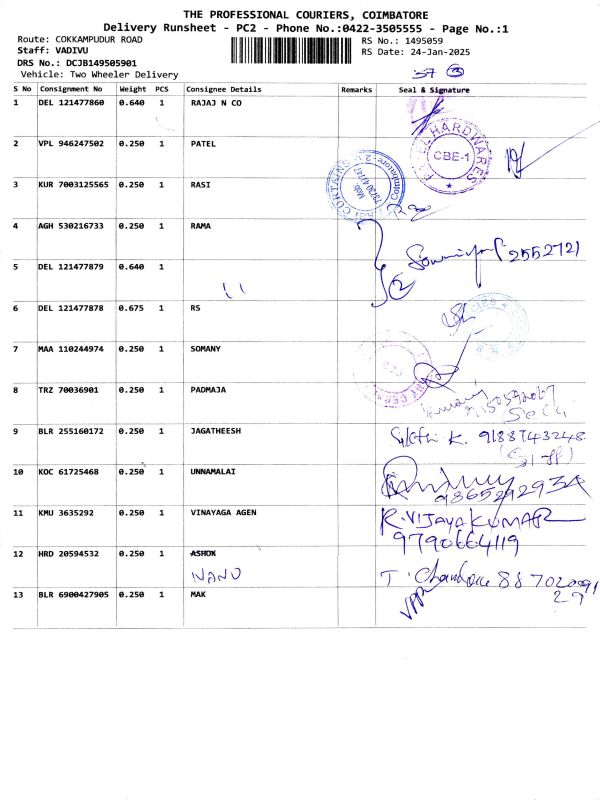 THE PROFESSIONAL COURIERS, COIMBATORE
Delivery Runsheet - PC2 - Phone No.:0422-3505555 - Page No.:1
Route: COKKAMPUDUR ROAD
RS No.: 1495059
Staff: VADIVU
RS Date: 24-Jan-2025
DRS No.: DCJB149505901
Vehicle: Two Wheeler Delivery
37 3
S No Consignment No Weight PCS Consignee Details Remarks Seal & Signature
1 DEL 121477860 0.640 1 RAJAJ N CO
HARDWARES
CBE-1
2 VPL 946247502 0.250 1 PATEL
3 KUR 7003125565 0.250 1 RASI
CURTAINS
Coimbatore-2
4 AGH 530216733 0.250 1 RAMA
2552721
2
5 DEL 121477879 0.640 1
6 DEL 121477878 0.675 1 RS
7 MAA 110244974 0.250 1 SOMANY
8 TRZ 70036901 0.250 1 PADMAJA
9 BLR 255160172 0.250 1 JAGATHEESH
K. 9188743248
10 KOC 61725468 0.250 1 UNNAMALAI
11 KMU 3635292 0.250 1 VINAYAGA AGEN
R.VIJAYAKUMAR
9790664119
12 HRD 20594532 0.250 1 ASHOK
NANU
13 BLR 6900427905 0.250 1 MAK